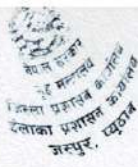 नेपाल सरकार
गृह मन्त्रालय
जिल्ला प्रशासन कार्यालय
इलाका प्रशासन कार्यालय
जस्पुर, प्यूठान